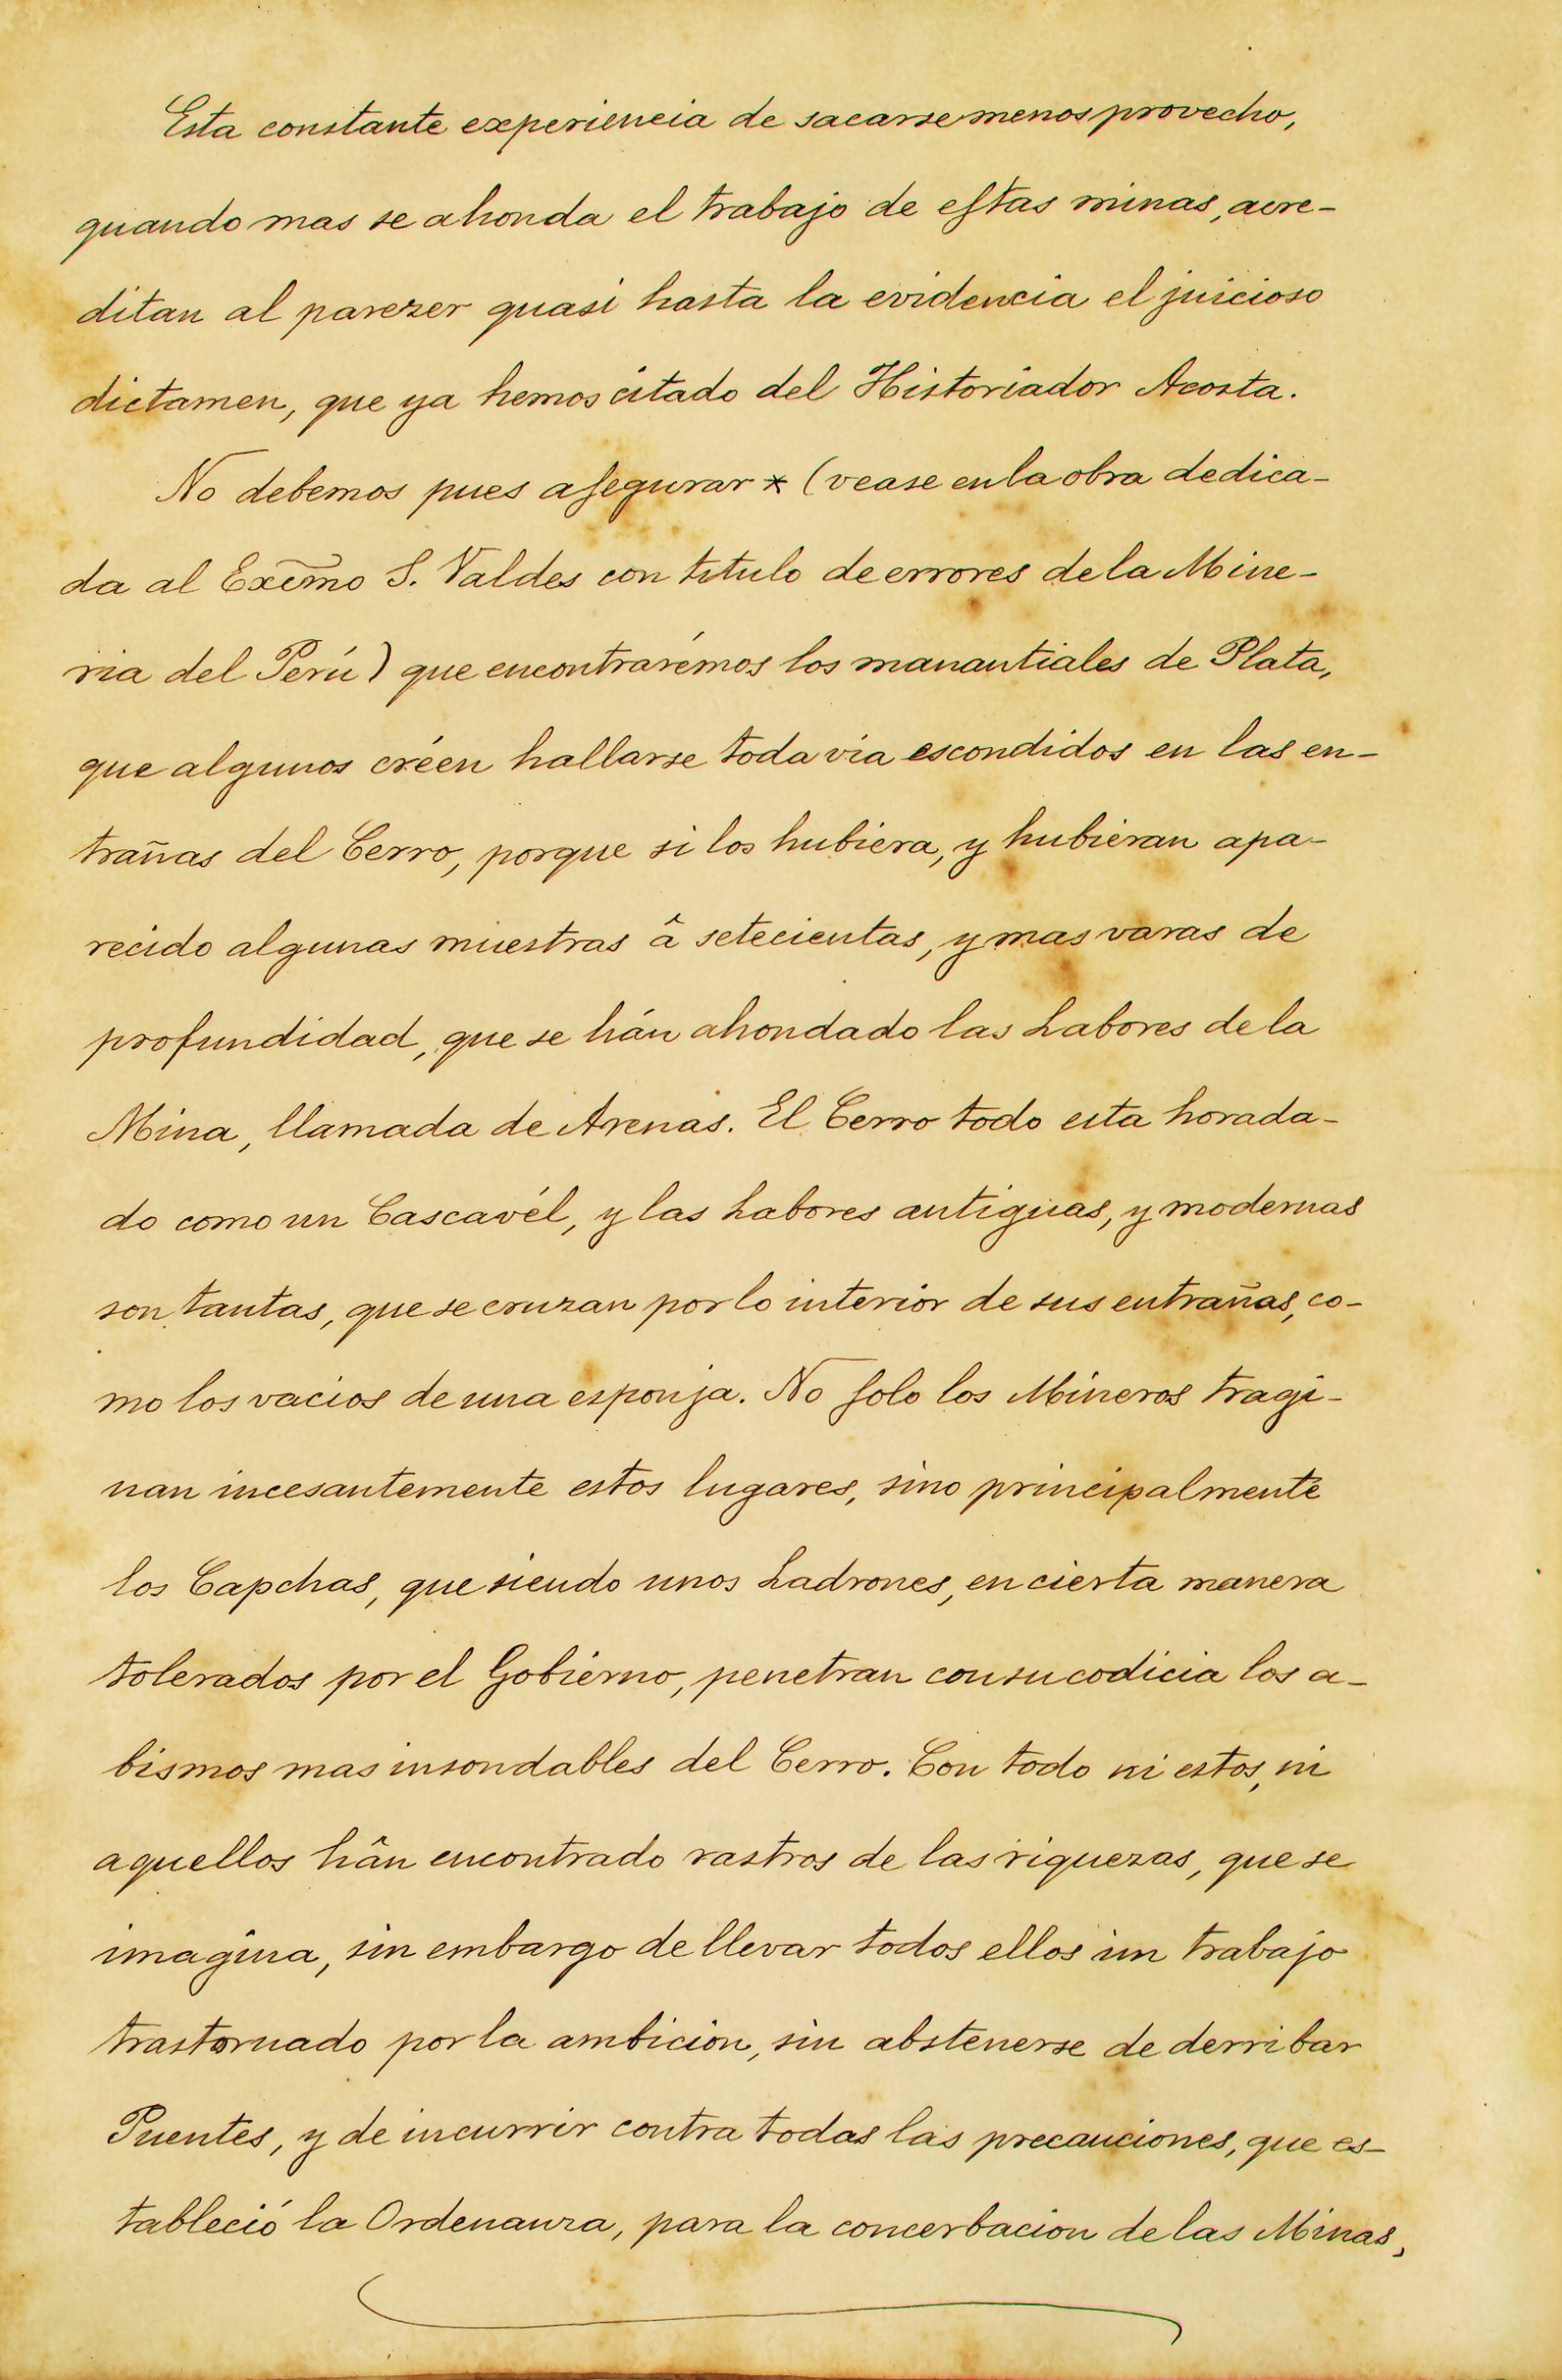 Esta constante experiencia de sacarse menos provecho,
quando mas se ahonda el trabajo de eſtas minas, acre-
ditan al parezer quasi hasta la evidencia el juicioso
dictamen, que ya hemos citado del Historiador Acosta.
No debemos pues aſegurar * (vease en la obra dedica-
da al Exc̃mo S. Valdes con titulo de errores de la Mine-
ria del Perú) que encontrarémos los manantiales de Plata,
que algunos créen hallarse toda via escondidos en las en-
trañas del Cerro, porque si los hubiera, y hubieran apa-
recido algunas muestras â setecientas, y mas varas de
profundidad, que se hán ahondado las Labores de la
Mina, llamada de Arenas. El Cerro todo esta horada-
do como un Cascavél, y las Labores antiguas, y modernas
son tantas, que se cruzan por lo interior de sus entrañas, co-
mo los vacios de una esponja. No ſolo los Mineros tragi-
nan incesantemente estos lugares, sino principalmente
los Capchas, que siendo unos Ladrones, en cierta manera
tolerados por el Gobierno, penetran con su codicia los a-
bismos mas insondables del Cerro. Con todo ni estos, ni
aquellos hân encontrado rastros de las riquezas, que se
imagina, sin embargo de llevar todos ellos un trabajo
trastornado por la ambicion, sin abstenerse de derribar
Puentes, y de incurrir contra todas las precauciones, que es-
tableció la Ordenanza, para la concerbacion de las Minas,